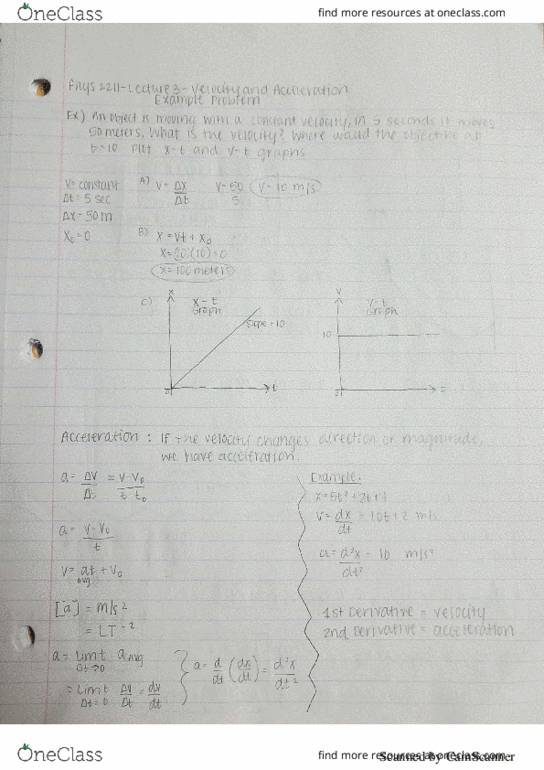 OneClass
find more resources at oneclass.com
Phys 2211-Lecture 3- Velocity and Acceleration
Example Problem
Ex) An object is moving with a constant velocity, in 5 seconds it moves
50 meters. What is the velocity? Where would the object be at
t=10 Plot x-t and v-t graphs
v= constant
Δt= 5 sec
Δx= 50 m
X₀=0
A) V= Δx/Δt V= 50/5 V= 10 m/s
B) X = Vt + X₀
X= (10)+0
X= 100 meters
C) X
X-t Graph
slope = 10
t
V
V-t Graph
10
Acceleration : If the velocity changes direction or magnitude,
we have acceleration.
a= ΔV/Δt = V-V₀/t-t₀
a= V-V₀/t
V= at + V₀
avg
[a] = m/s²
= LT⁻²
a= limit Δt→0 a avg
= Limit Δt=0 ΔV/Δt = dv/dt
a= d/dt (dx/dt) = d²x/dt²
Example:
V= dx/dt = 10t+2 m/s
a= d²x/dt² = 10 m/s²
1st Derivative = velocity
2nd Derivative = acceleration
OneClass
find more resources at oneclass.com
Scanned by CamScanner